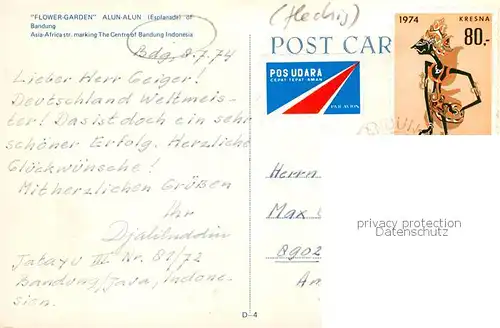 "FLOWER-GARDEN" ALUN-ALUN (Esplanade) of
Bandung
Asia-Africa str. marking The Centre of Bandung Indonesia
Bdg, 8.7.74
Lieber Herr Geiger!
Deutschland Weltmeis-
ter! Das ist doch ein sehr
schöner Erfolg. Herzliche
Glückwünsche!
Mit herzlichen Grüßen
Ihr
Djaliluddin
Jatayu III Nr. 81/72
Bandung/Java, Indone-
sien.
D-4
POST CAR
POS UDARA
CEPAT TEPAT AMAN
PAR AVION
1974 KRESNA
80.-
Herrn
Max
8902
privacy protection
www.oldthing.com